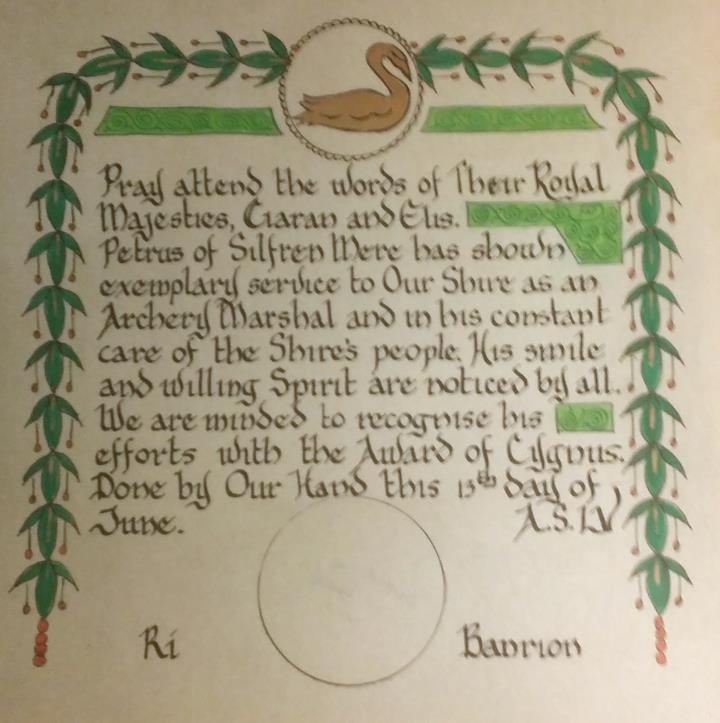 Pray attend the words of Their Royal
Majesties, Ciaran and Elis.
Petrus of Silfren Mere has shown
exemplary service to Our Shire as an
Archery Marshal and in his constant
care of the Shire's people. His smile
and willing Spirit are noticed by all.
We are minded to recognise his
efforts with the Award of Cygnus.
Done by Our Hand this 13th day of
June. A.S. LV
Rí Banrion